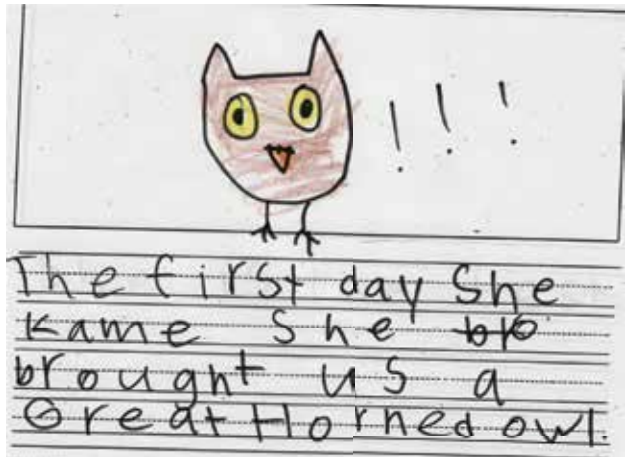 ! ! !
The first day She
Kame She bro
brought us a
Great Horned owl.